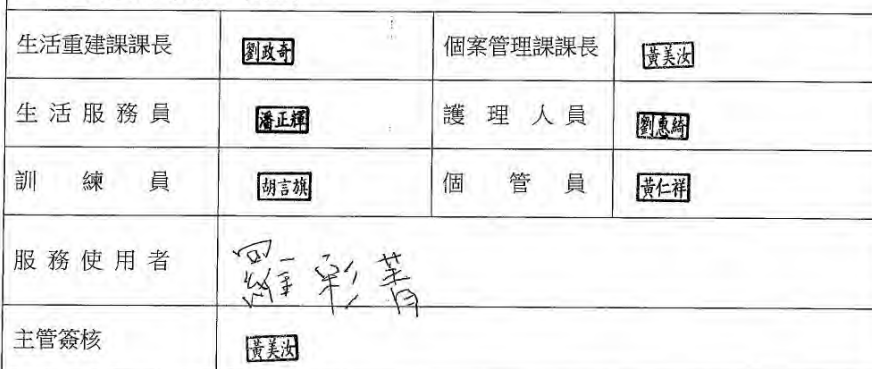 生活重建課課長 劉政奇 個案管理課課長 黃美汝
生活服務員 潘正輝 護理人員 劉惠綺
訓練員 胡言旗 個管員 黃仁祥
服務使用者 羅彩菁
主管簽核 黃美汝